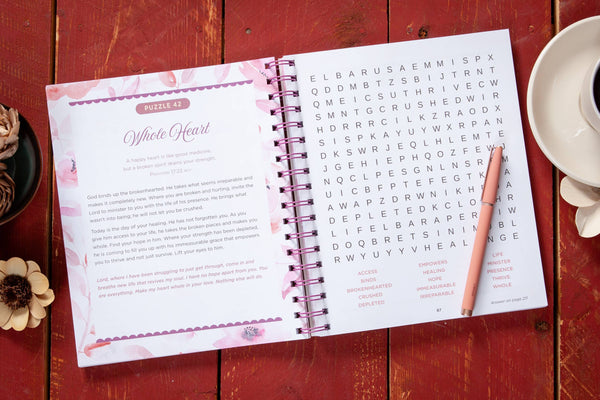 PUZZLE 42
Whole Heart
A happy heart is like good medicine,
but a broken spirit drains your strength.
Proverbs 17:22
God binds up the brokenhearted. He takes what seems irreparable and
makes it completely new. Where you are broken and hurting, invite the
Lord to minister to you with the life of his presence. He brings what
wasn't into being; he will not let you be crushed.
Today is the day of your healing. He has not forgotten you. As you
give him access to your life, he takes the broken pieces and makes you
whole. Find your hope in him. Where your strength has been depleted,
he is coming to fill you up with his immeasurable grace that empowers
you to thrive and not just survive. Lift your eyes to him.
Lord, where I have been struggling to just get through, come in and
breathe new life that revives my soul. I have no hope apart from you. You
are everything. Make my heart whole in your love. Nothing else will do.
E L B A R U S A E M M I S P X
Q D D M B T Z S B I J T R N T
Q M E I C S U T H R I V E C W
S M N T G C R U S H E D W I R
H D R R R C I L K Z R A O D X
S I S P K A Y U Y W X R P A N
D K S W R J E Q L H L E M T E
J G E H I E P H Q O Z F E
N Q C L P E S G N L N S R
U I C B F P T E F E G T K
A W A P Z D R W N I K H
D E P L E T E D K C L O
L I F E L B A R A P E R
D O Q B R E T S I N I M
R W Y U Y Y V H E A L N G E
ACCESS
BINDS
BROKENHEARTED
CRUSHED
DEPLETED
EMPOWERS
HEALING
HOPE
IMMEASURABLE
IRREPARABLE
LIFE
MINISTER
PRESENCE
THRIVE
WHOLE
87
Answer on page 211